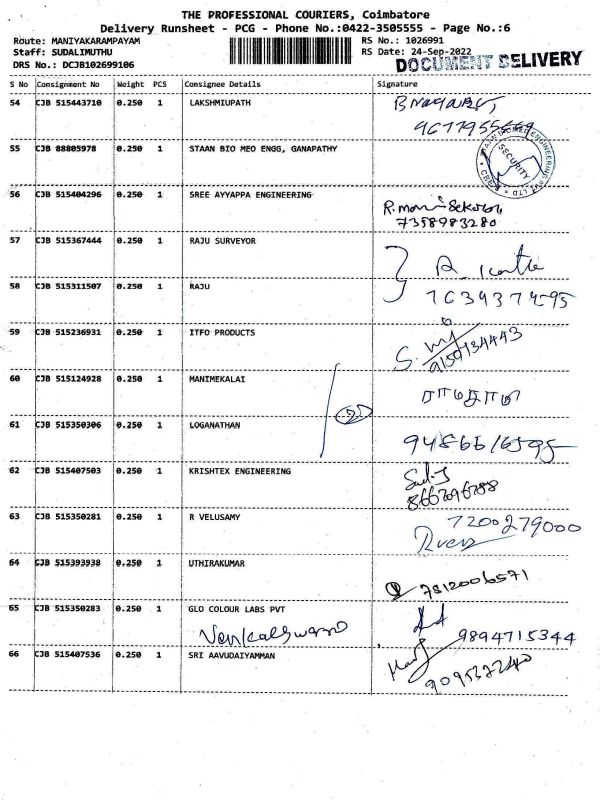 THE PROFESSIONAL COURIERS, Coimbatore
Delivery Runsheet - PCG - Phone No.:0422-3505555 - Page No.:6
Route: MANIYAKARAMPAYAM
RS No.: 1026991
Staff: SUDALIMUTHU
RS Date: 24-Sep-2022
DRS No.: DCJB102699106
DOCUMENT DELIVERY
S No Consignment No Weight PCS Consignee Details Signature
54 CJB 515443710 0.250 1 LAKSHMIUPATH
55 CJB 88805978 0.250 1 STAAN BIO MEO ENGG, GANAPATHY
SECURITY
56 CJB 515404296 0.250 1 SREE AYYAPPA ENGINEERING
7358983280
57 CJB 515367444 0.250 1 RAJU SURVEYOR
58 CJB 515311507 0.250 1 RAJU
59 CJB 515236931 0.250 1 ITFO PRODUCTS
9159134443
60 CJB 515124928 0.250 1 MANIMEKALAI
61 CJB 515350306 0.250 1 LOGANATHAN
62 CJB 515407503 0.250 1 KRISHTEX ENGINEERING
63 CJB 515350281 0.250 1 R VELUSAMY
7200279000
64 CJB 515393938 0.250 1 UTHIRAKUMAR
7512006571
65 CJB 515350283 0.250 1 GLO COLOUR LABS PVT
9894715344
66 CJB 515407536 0.250 1 SRI AAVUDAIYAMMAN